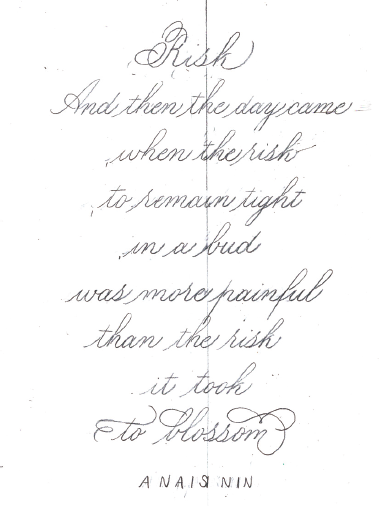 Risk
And then the day came
when the risk
to remain tight
in a bud
was more painful
than the risk
it took
to blossom
ANAIS NIN